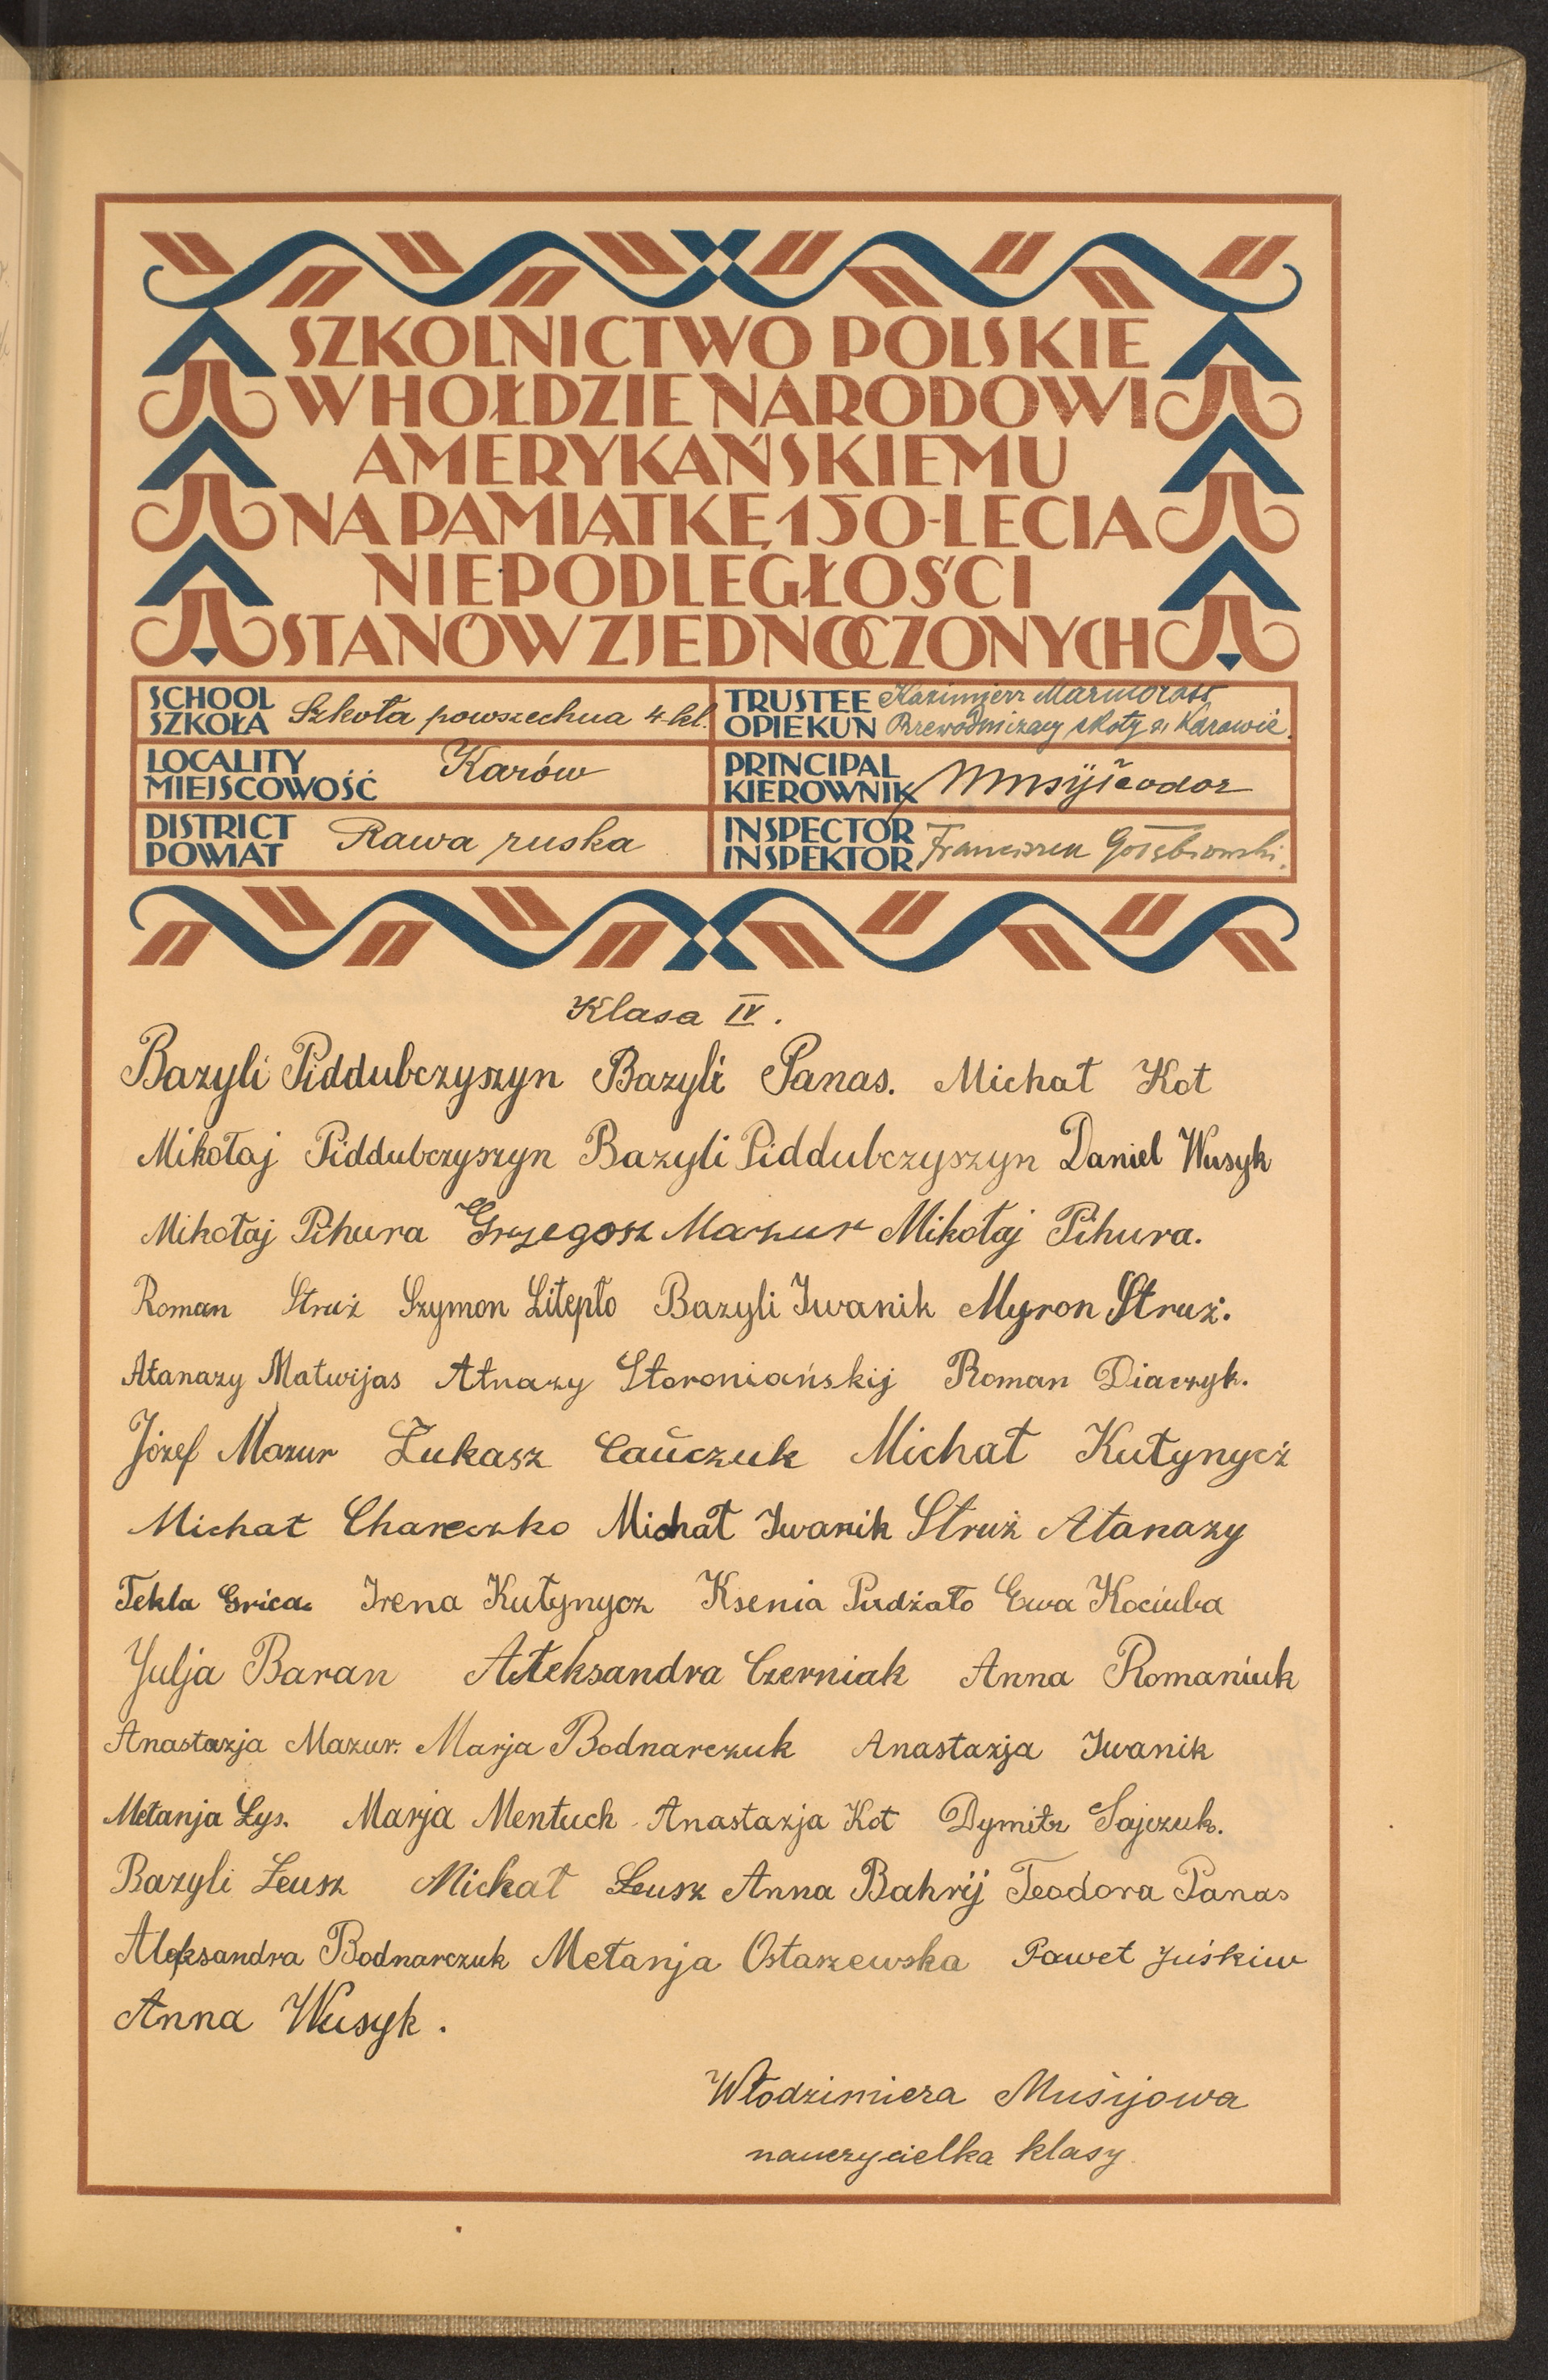 SZKOLNICTWO POLSKIE
W HOŁDZIE NARODOWI
AMERYKAŃSKIEMU
NA PAMIĄTKĘ 150-LECIA
NIEPODLEGŁOŚCI
STANÓW ZJEDNOCZONYCH
SCHOOL
SZKOŁA Szkoła powszechna 4 kl.
TRUSTEE Kazimierz Marmoross
OPIEKUN Przewodniczący szkoły w Karowie.
LOCALITY
MIEJSCOWOŚĆ Karów
PRINCIPAL
KIEROWNIK Musij Teodor
DISTRICT
POWIAT Rawa ruska
INSPECTOR
INSPEKTOR Franciszek Gołębiowski.
Klasa IV.
Bazyli Piddubczyszyn Bazyli Panas. Michał Kot
Mikołaj Piddubczyszyn Bazyli Piddubczyszyn Daniel Wusyk
Mikołaj Pihura Grzegosz Mazur Mikołaj Pihura.
Roman Struż Szymon Litepło Bazyli Iwanik Myron Struż.
Atanazy Matwijas Atnazy Storoniańskij Roman Diaczyk.
Józef Mazur Łukasz Cańczuk Michał Kutynycź
Michał Chareczko Michał Iwanik Struż Atanazy
Tekla Grica. Irena Kutynycz Ksenia Pudżało Ewa Kociuba
Julja Baran Aleksandra Czerniak Anna Romaniuk
Anastazja Mazur. Marja Bodnarczuk Anastazja Iwanik
Mełanja Łys. Marja Mentuch Anastazja Kot Dymitr Sajczuk.
Bazyli Łeusz Michał Łeusz Anna Bahrij Teodora Panas
Aleksandra Bodnarczuk Mełanja Ostaszewska Paweł Juśkiw
Anna Wusyk.
Włodzimiera Musijowa
nauczycielka klasy